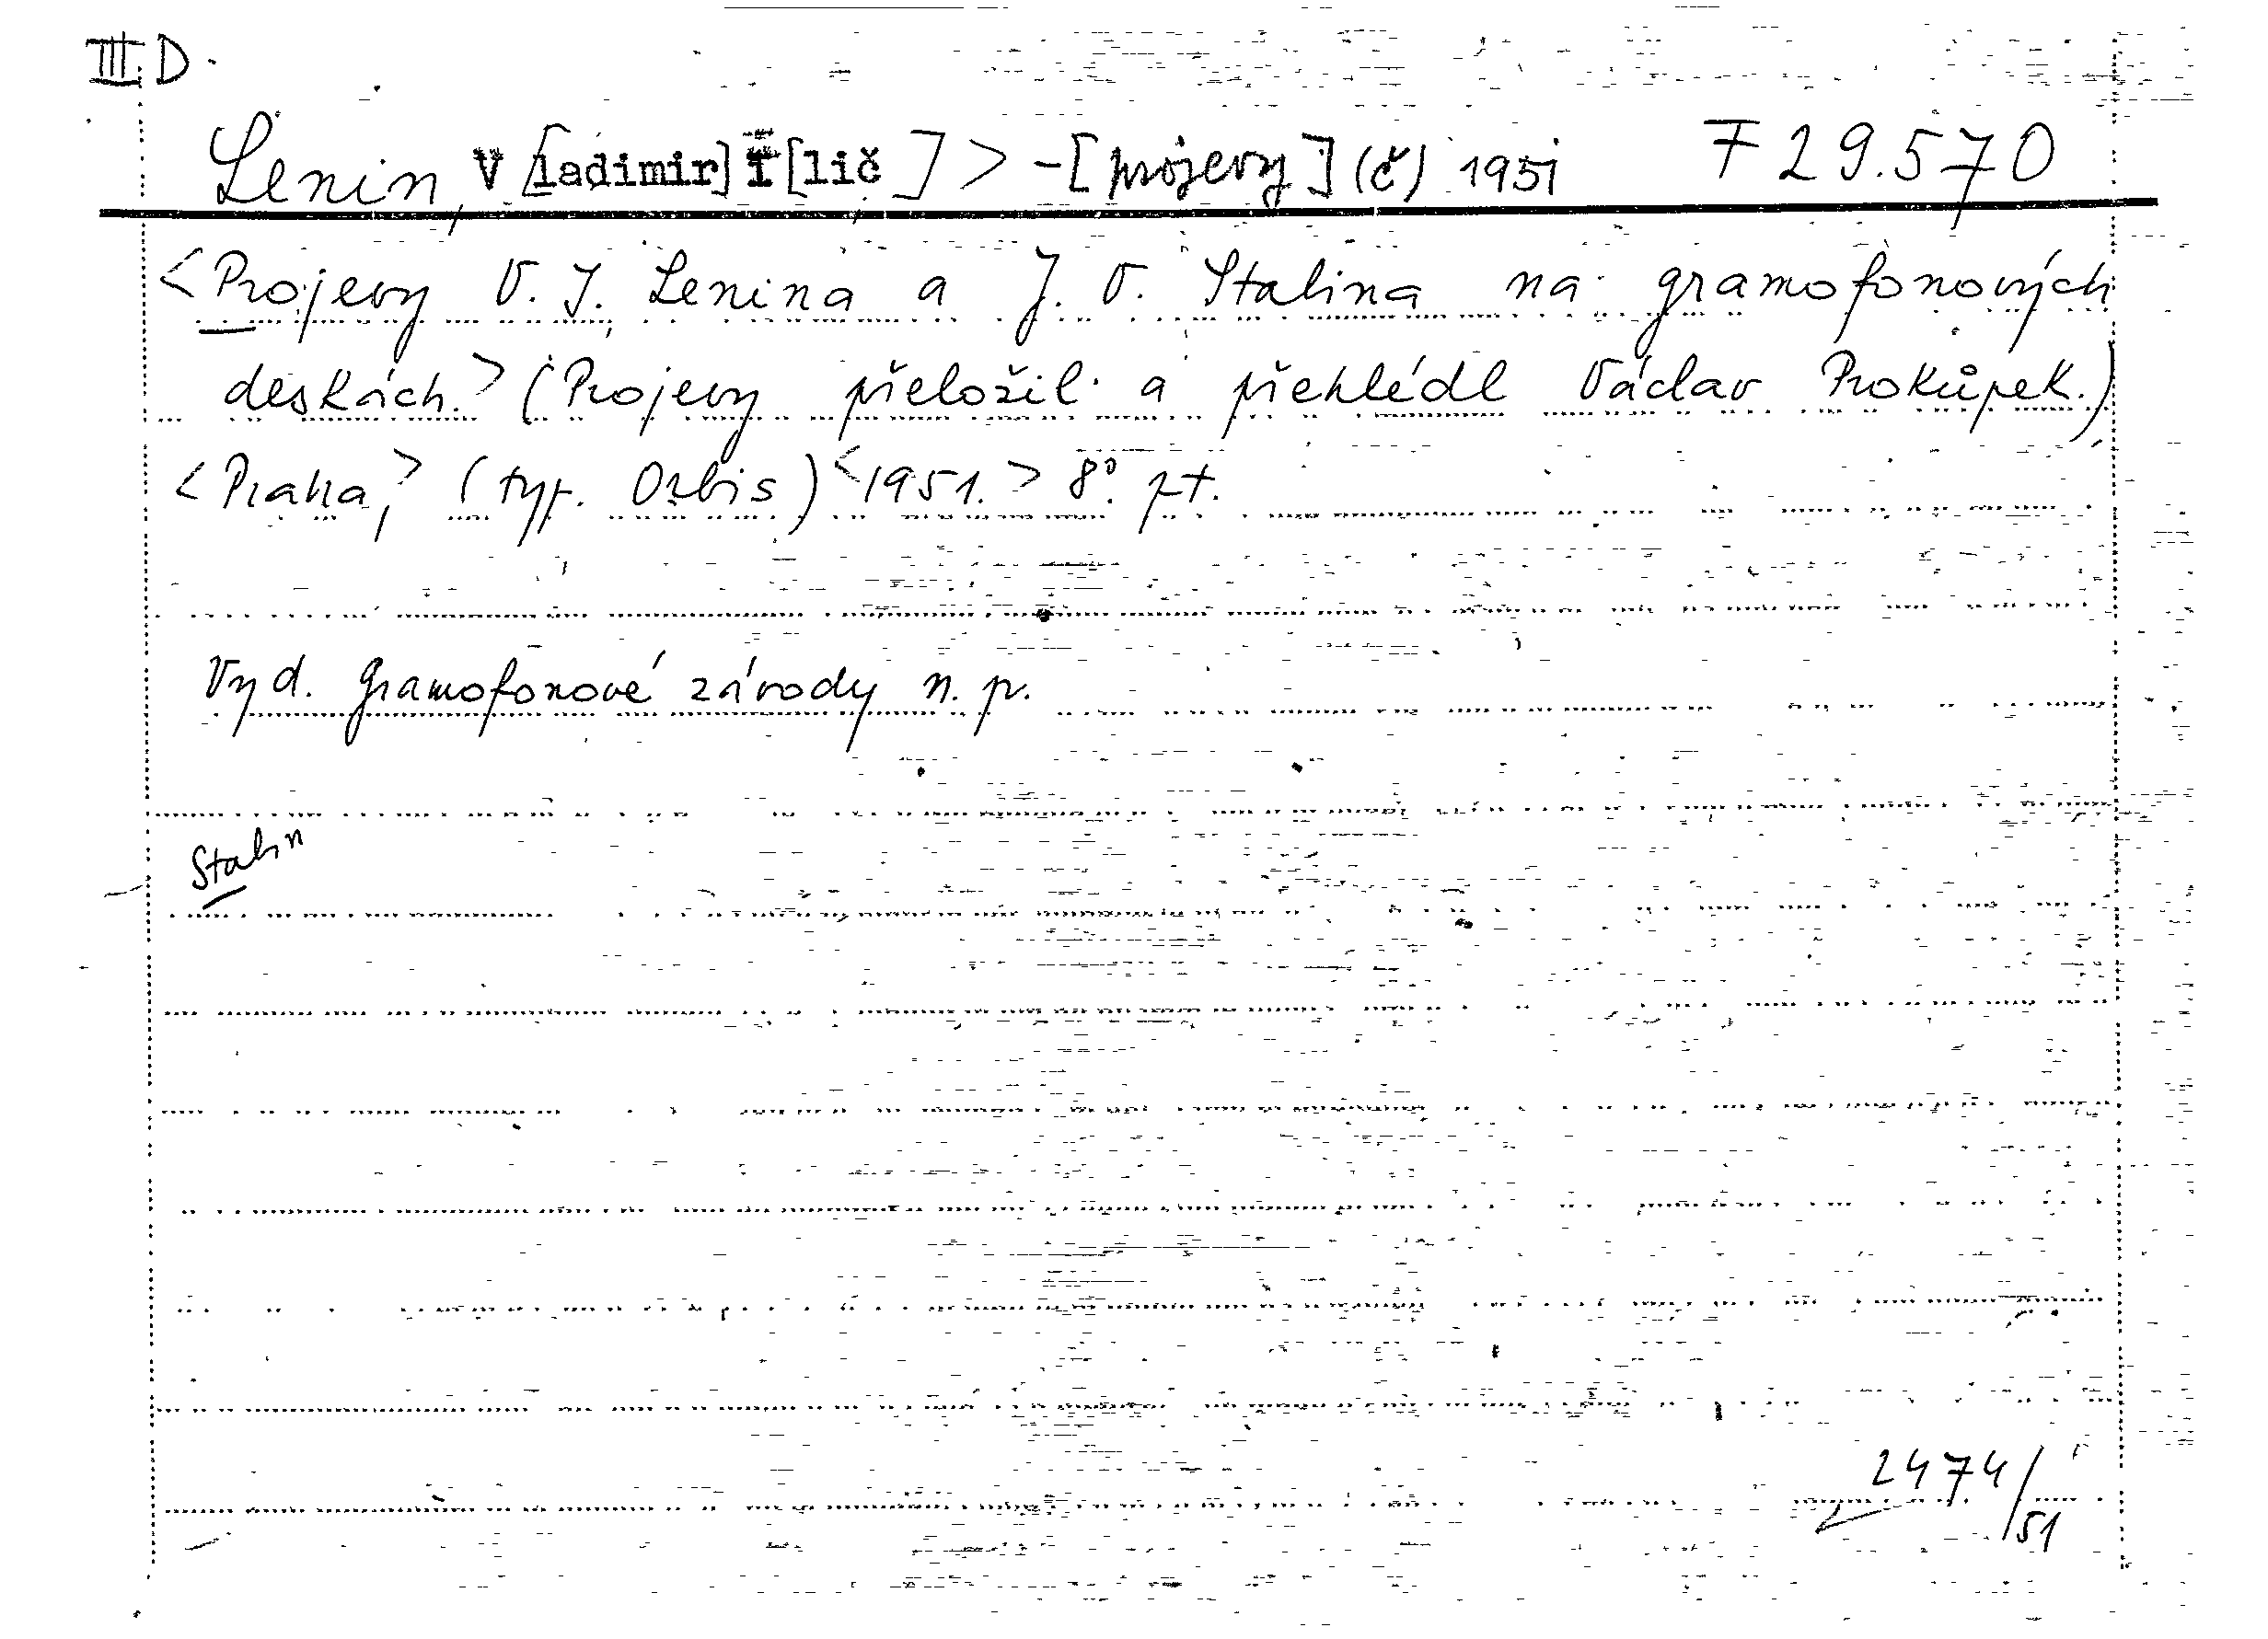 III D.
Lenin, V[ladimir] I[lič]> -[projevy] (č) 1951 F 29.570
<Projevy V. I. Lenina a J. V. Stalina na gramofonových
deskách.> (Projevy přeložil a přehlédl Václav Prokůpek.)
<Praha,> (typ. Orbis) <1951.> 8°. pt.
Vyd. Gramofonové závody n. p.
Stalin
2474/51